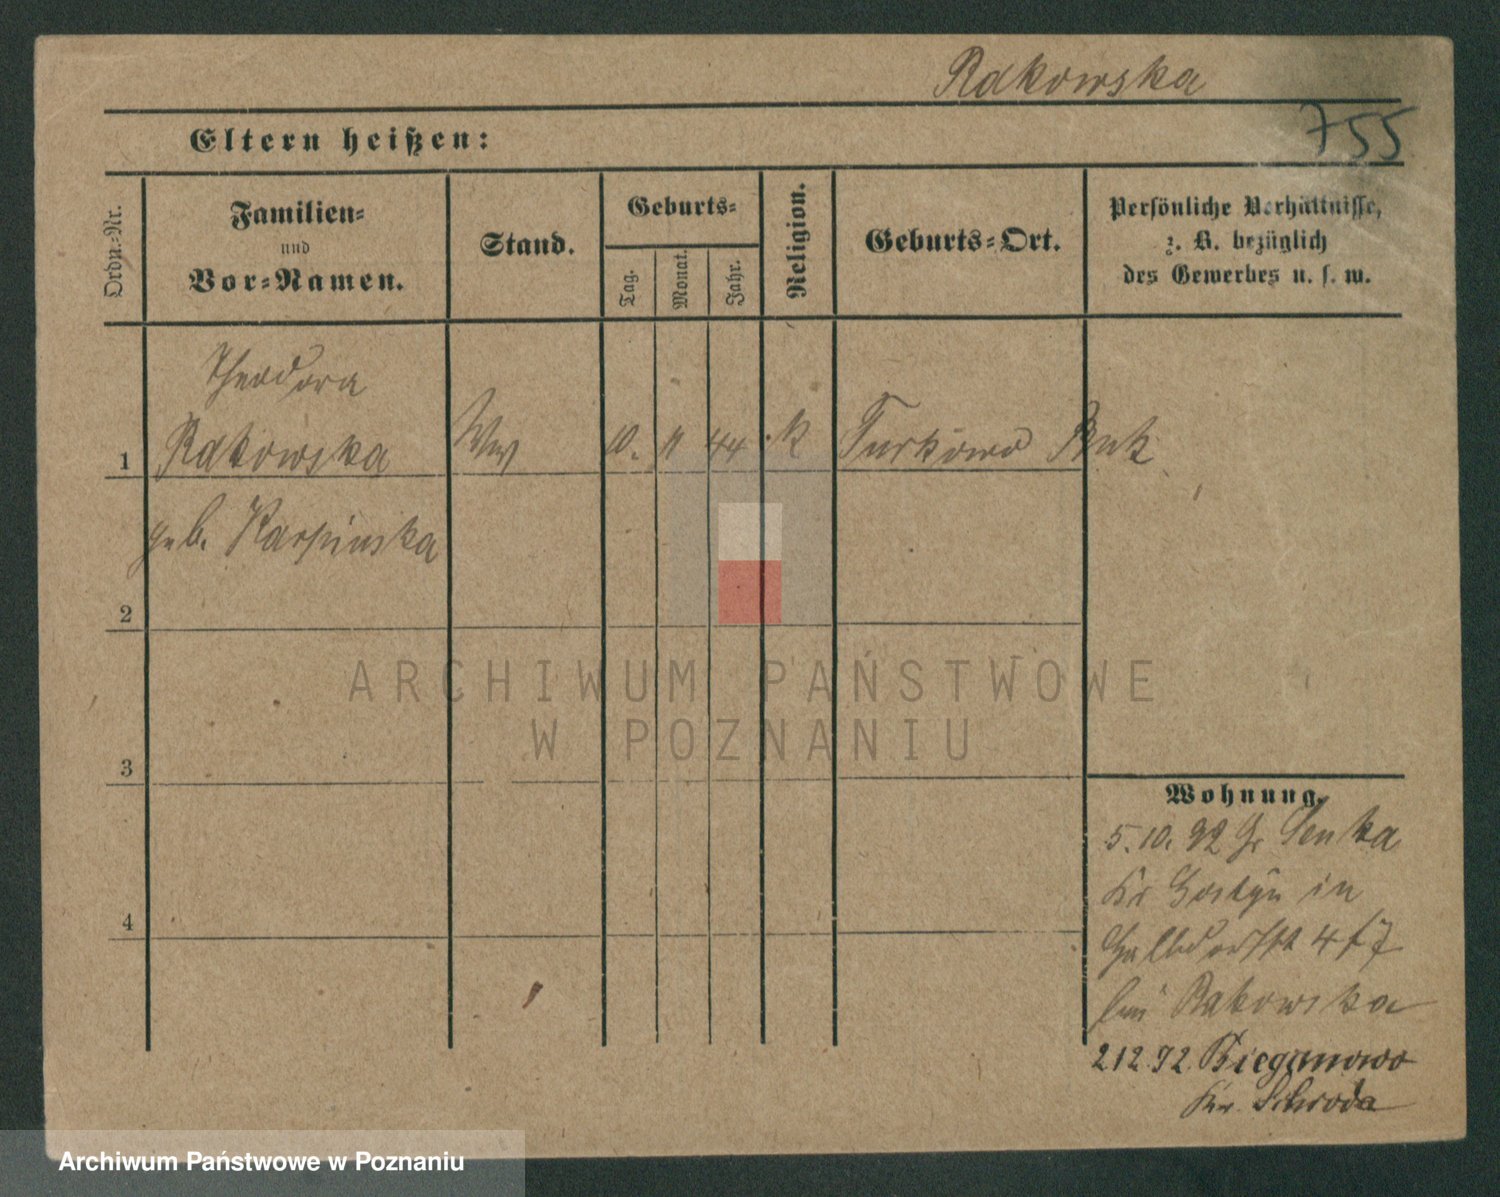 Rakowska
755
Eltern heißen:
Ordn.-Nr.
Familien-
und
Vor-Namen.
Stand.
Geburts-
Tag.
Monat.
Jahr.
Religion.
Geburts-Ort.
Persönliche Verhältnisse,
z. B. bezüglich
des Gewerbes u. s. w.
Theodora
1 Rakowska Ww 10. 11 44 k Turkowo Buk
geb. Karpinska
2
3
4
ARCHIWUM PAŃSTWOWE
W POZNANIU
Wohnung.
5.10.92 Gr Lenka
Kr Gostyn in
Halbdorfstr 4 f 7
bei Rakowska
2 12.92. Bieganowo
Kr. Schroda
Archiwum Państwowe w Poznaniu